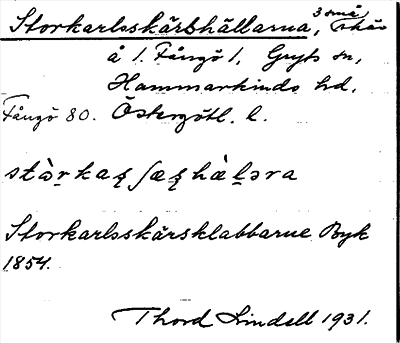 Storkarlsskärshällarna, 3 små skär
å 1. Fångö 1, Gryts sn,
Hammarkinds hd,
Fångö 80. Östergötl. l.
stàrkaʂ ʃæʂhàlǝra
Storkarlsskärsklabbarne Byk
1854.
Thord Lindell 1931.